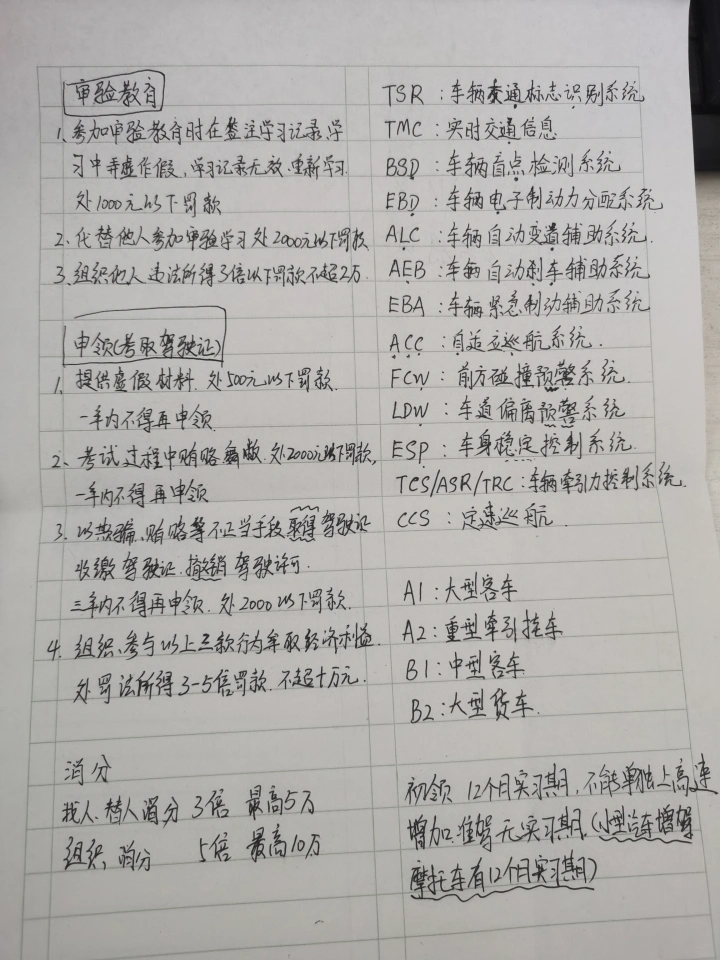 审验教育
1、参加审验教育时在签注学习记录、学
习中弄虚作假,学习记录无效.重新学习.
处1000元以下罚款
2、代替他人参加审验学习处2000元以下罚款
3、组织他人违法所得3倍以下罚款不超2万.
申领(考取驾驶证)
1、提供虚假材料.处500元以下罚款.
一年内不得再申领.
2、考试过程中贿赂舞弊.处2000元以下罚款,
一年内不得再申领
3、以欺骗、贿赂等不正当手段取得驾驶证
收缴驾驶证.撤销驾驶许可.
三年内不得再申领.处2000以下罚款.
4、组织、参与以上三款行为牟取经济利益.
处罚法所得3-5倍罚款.不超十万元.
消分
找人.替人消分 3倍 最高5万
组织,消分 5倍 最高10万
TSR:车辆交通标志识别系统
TMC:实时交通信息
BSD:车辆盲点检测系统
EBD:车辆电子制动力分配系统
ALC:车辆自动变道辅助系统.
AEB:车辆自动刹车辅助系统
EBA:车辆紧急制动辅助系统
ACC:自适应巡航系统.
FCW:前方碰撞预警系统.
LDW:车道偏离预警系统
ESP:车身稳定控制系统.
TCS/ASR/TRC:车辆牵引力控制系统.
CCS:定速巡航.
A1:大型客车
A2:重型牵引挂车
B1:中型客车
B2:大型货车.
初领 12个月实习期,不能单独上高速
增加.准驾无实习期.(小型汽车增驾
摩托车有12个月实习期)